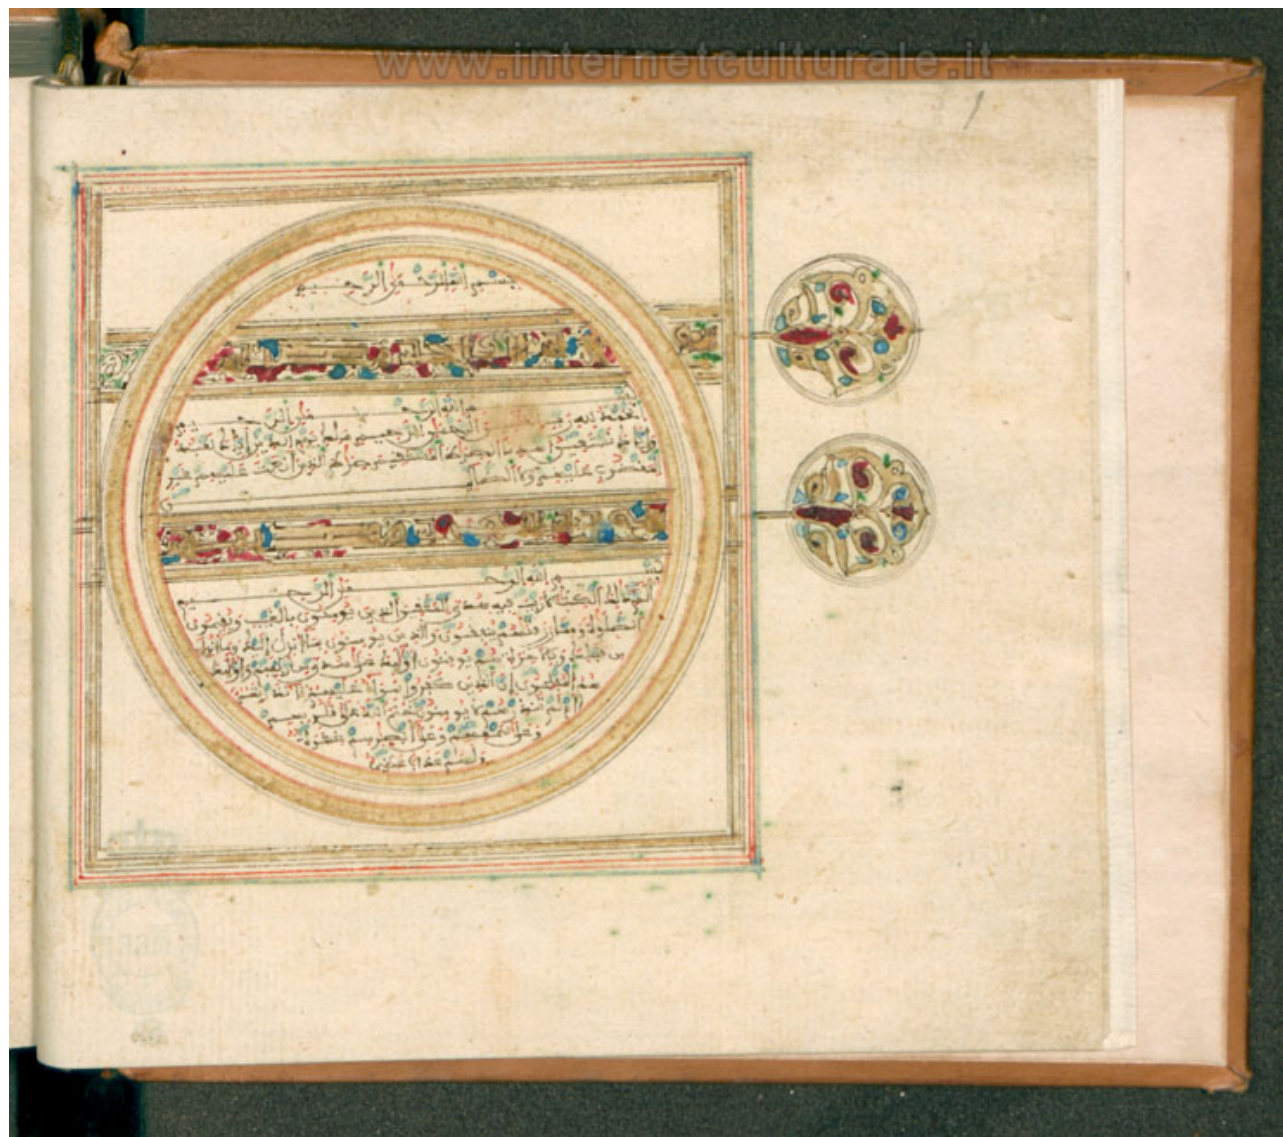 www.internetculturale.it
1
بسم الله الرحمن الرحيم
بسم الله الرحمن الرحيم
الحمد لله رب العلمين الرحمن الرحيم ملك يوم الدين إياك نعبد
وإياك نستعين اهدنا الصراط المستقيم صراط الذين أنعمت عليهم غير
المغضوب عليهم ولا الضالين
بسم الله الرحمن الرحيم
الم ذلك الكتب لا ريب فيه هدى للمتقين الذين يومنون بالغيب ويقيمون
الصلوة ومما رزقنهم ينفقون والذين يومنون بما أنزل إليك وما أنزل
من قبلك وبالاخرة هم يوقنون أوليك على هدى من ربهم وأوليك
هم المفلحون إن الذين كفروا سواء عليهم ءانذرتهم
أم لم تنذرهم لا يومنون ختم الله على قلوبهم
وعلى سمعهم وعلى أبصرهم غشوة
ولهم عذاب عظيم